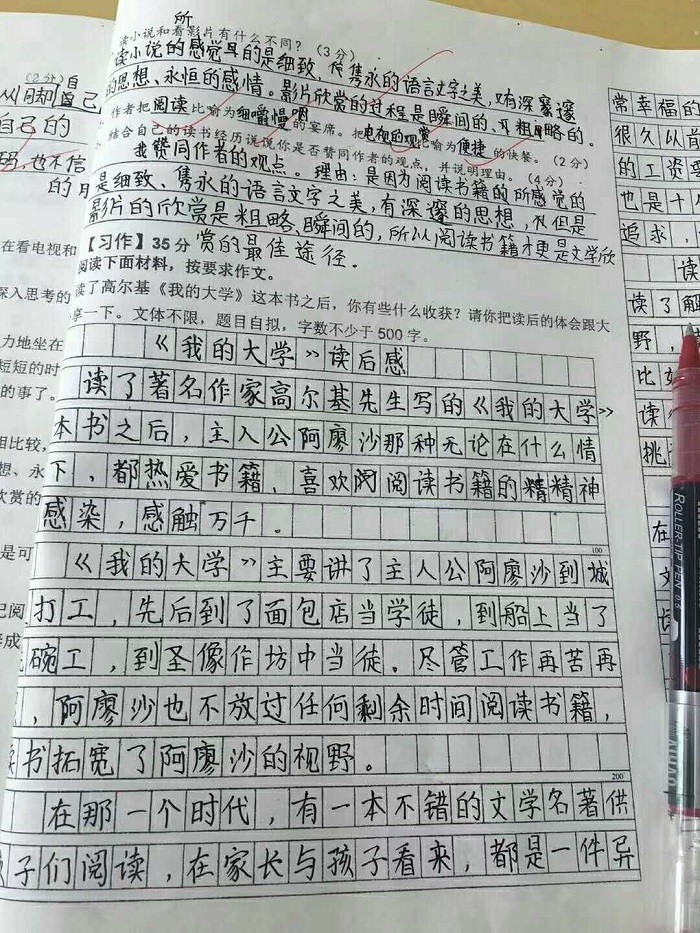 所
读小说和看影片有什么不同？（3分）
读小说的感觉真的是细致、隽永的语言文字之美，有深邃
的思想、永恒的感情。影片欣赏的过程是瞬间的、粗略的。
作者把阅读比喻为细嚼慢咽的宴席。把电视的观赏比喻为便捷的快餐。（2分）
结合自己的读书经历说说你是否赞同作者的观点，并说明理由。（4分）
我赞同作者的观点。理由：是因为阅读书籍的所感觉的
是细致、隽永的语言文字之美，有深邃的思想，但是
影片的欣赏是粗略、瞬间的，所以阅读书籍才更是文学欣
赏的最佳途径．
【习作】35分
阅读下面材料，按要求作文。
读了高尔基《我的大学》这本书之后，你有些什么收获？请你把读后的体会跟大
享一下。文体不限，题目自拟，字数不少于500字。
《我的大学》读后感
读了著名作家高尔基先生写的《我的大学》
本书之后，主人公阿廖沙那种无论在什么情
下，都热爱书籍、喜欢阅读书籍的精神
感染，感触万千。
100
《我的大学》主要讲了主人公阿廖沙到城
打工，先后到了面包店当学徒，到船上当了
碗工，到圣像作坊中当徒。尽管工作再苦再
，阿廖沙也不放过任何剩余时间阅读书籍，
读书拓宽了阿廖沙的视野。
200
在那一个时代，有一本不错的文学名著供
孩子们阅读，在家长与孩子看来，都是一件异
（2分）
自己
自己的
也不信
的
在看电视和
深入思考的
力地坐在
短短的时
的事了。
相比较，
想、永
欣赏的
是可
己阅
常幸福的
很久以前
的工资要
也是十
追求，
读
读了解
野，
比如
读
挑
在
文
ROLLER-TIP PEN 0.5